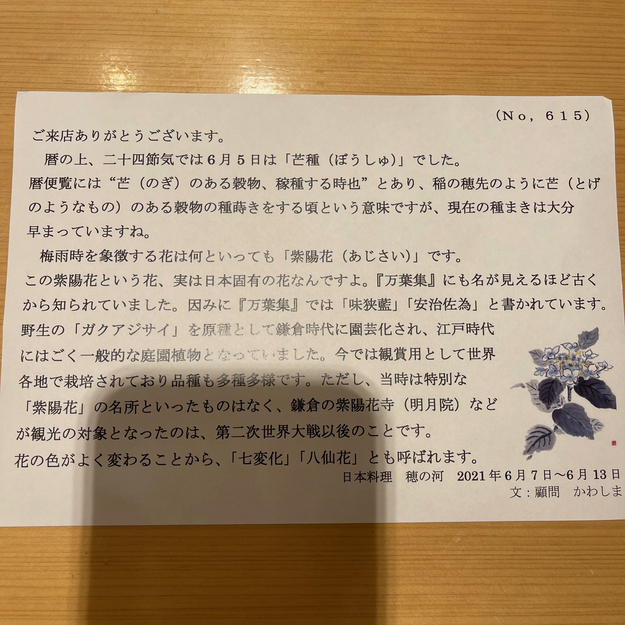 （Ｎｏ，６１５）
ご来店ありがとうございます。
暦の上、二十四節気では６月５日は「芒種（ぼうしゅ）」でした。
暦便覧には“芒（のぎ）のある穀物、稼種する時也”とあり、稲の穂先のように芒（とげ
のようなもの）のある穀物の種蒔きをする頃という意味ですが、現在の種まきは大分
早まっていますね。
梅雨時を象徴する花は何といっても「紫陽花（あじさい）」です。
この紫陽花という花、実は日本固有の花なんですよ。『万葉集』にも名が見えるほど古く
から知られていました。因みに『万葉集』では「味狭藍」「安治佐為」と書かれています。
野生の「ガクアジサイ」を原種として鎌倉時代に園芸化され、江戸時代
にはごく一般的な庭園植物となっていました。今では観賞用として世界
各地で栽培されており品種も多種多様です。ただし、当時は特別な
「紫陽花」の名所といったものはなく、鎌倉の紫陽花寺（明月院）など
が観光の対象となったのは、第二次世界大戦以後のことです。
花の色がよく変わることから、「七変化」「八仙花」とも呼ばれます。
日本料理　穂の河　2021年６月７日～６月13日
文：顧問　かわしま